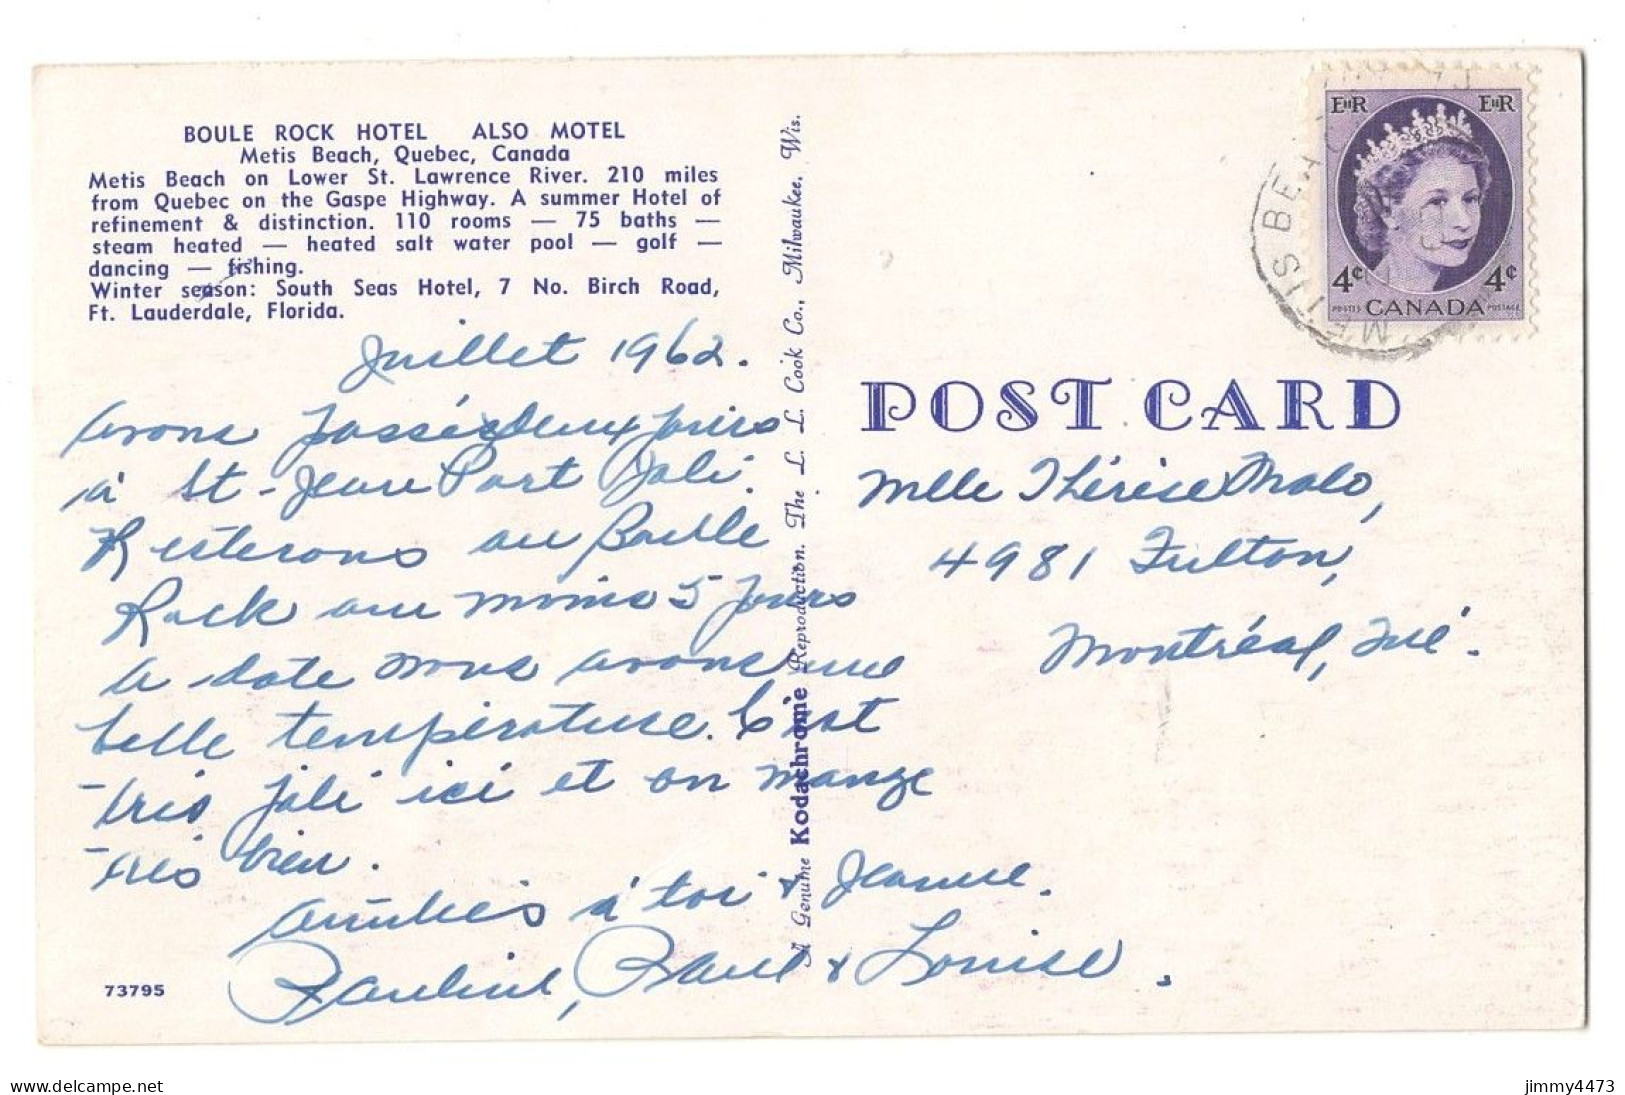 BOULE ROCK HOTEL ALSO MOTEL
Metis Beach, Quebec, Canada
Metis Beach on Lower St. Lawrence River. 210 miles
from Quebec on the Gaspe Highway. A summer Hotel of
refinement & distinction. 110 rooms — 75 baths —
steam heated — heated salt water pool — golf —
dancing — fishing.
Winter season: South Seas Hotel, 7 No. Birch Road,
Ft. Lauderdale, Florida.
Juillet 1962.
Avons passés deux jours
à St-Jean Port Joli.
Resterons au Boulle
Rock au moins 5 jours
a date nous avons une
belle température. C'est
très joli ici et on mange
très bien.
Amitiés à toi & Jeanne.
Pauline, Paul & Louise.
73795
A Genuine Kodachrome Reproduction. The L. L. Cook Co., Milwaukee, Wis.
E II R E II R
4¢ 4¢
POSTES CANADA POSTAGE
METIS BEACH
POST CARD
Mlle Thérèse Malo,
4981 Fulton,
Montréal, Qué.
delcampe.net
jimmy4473